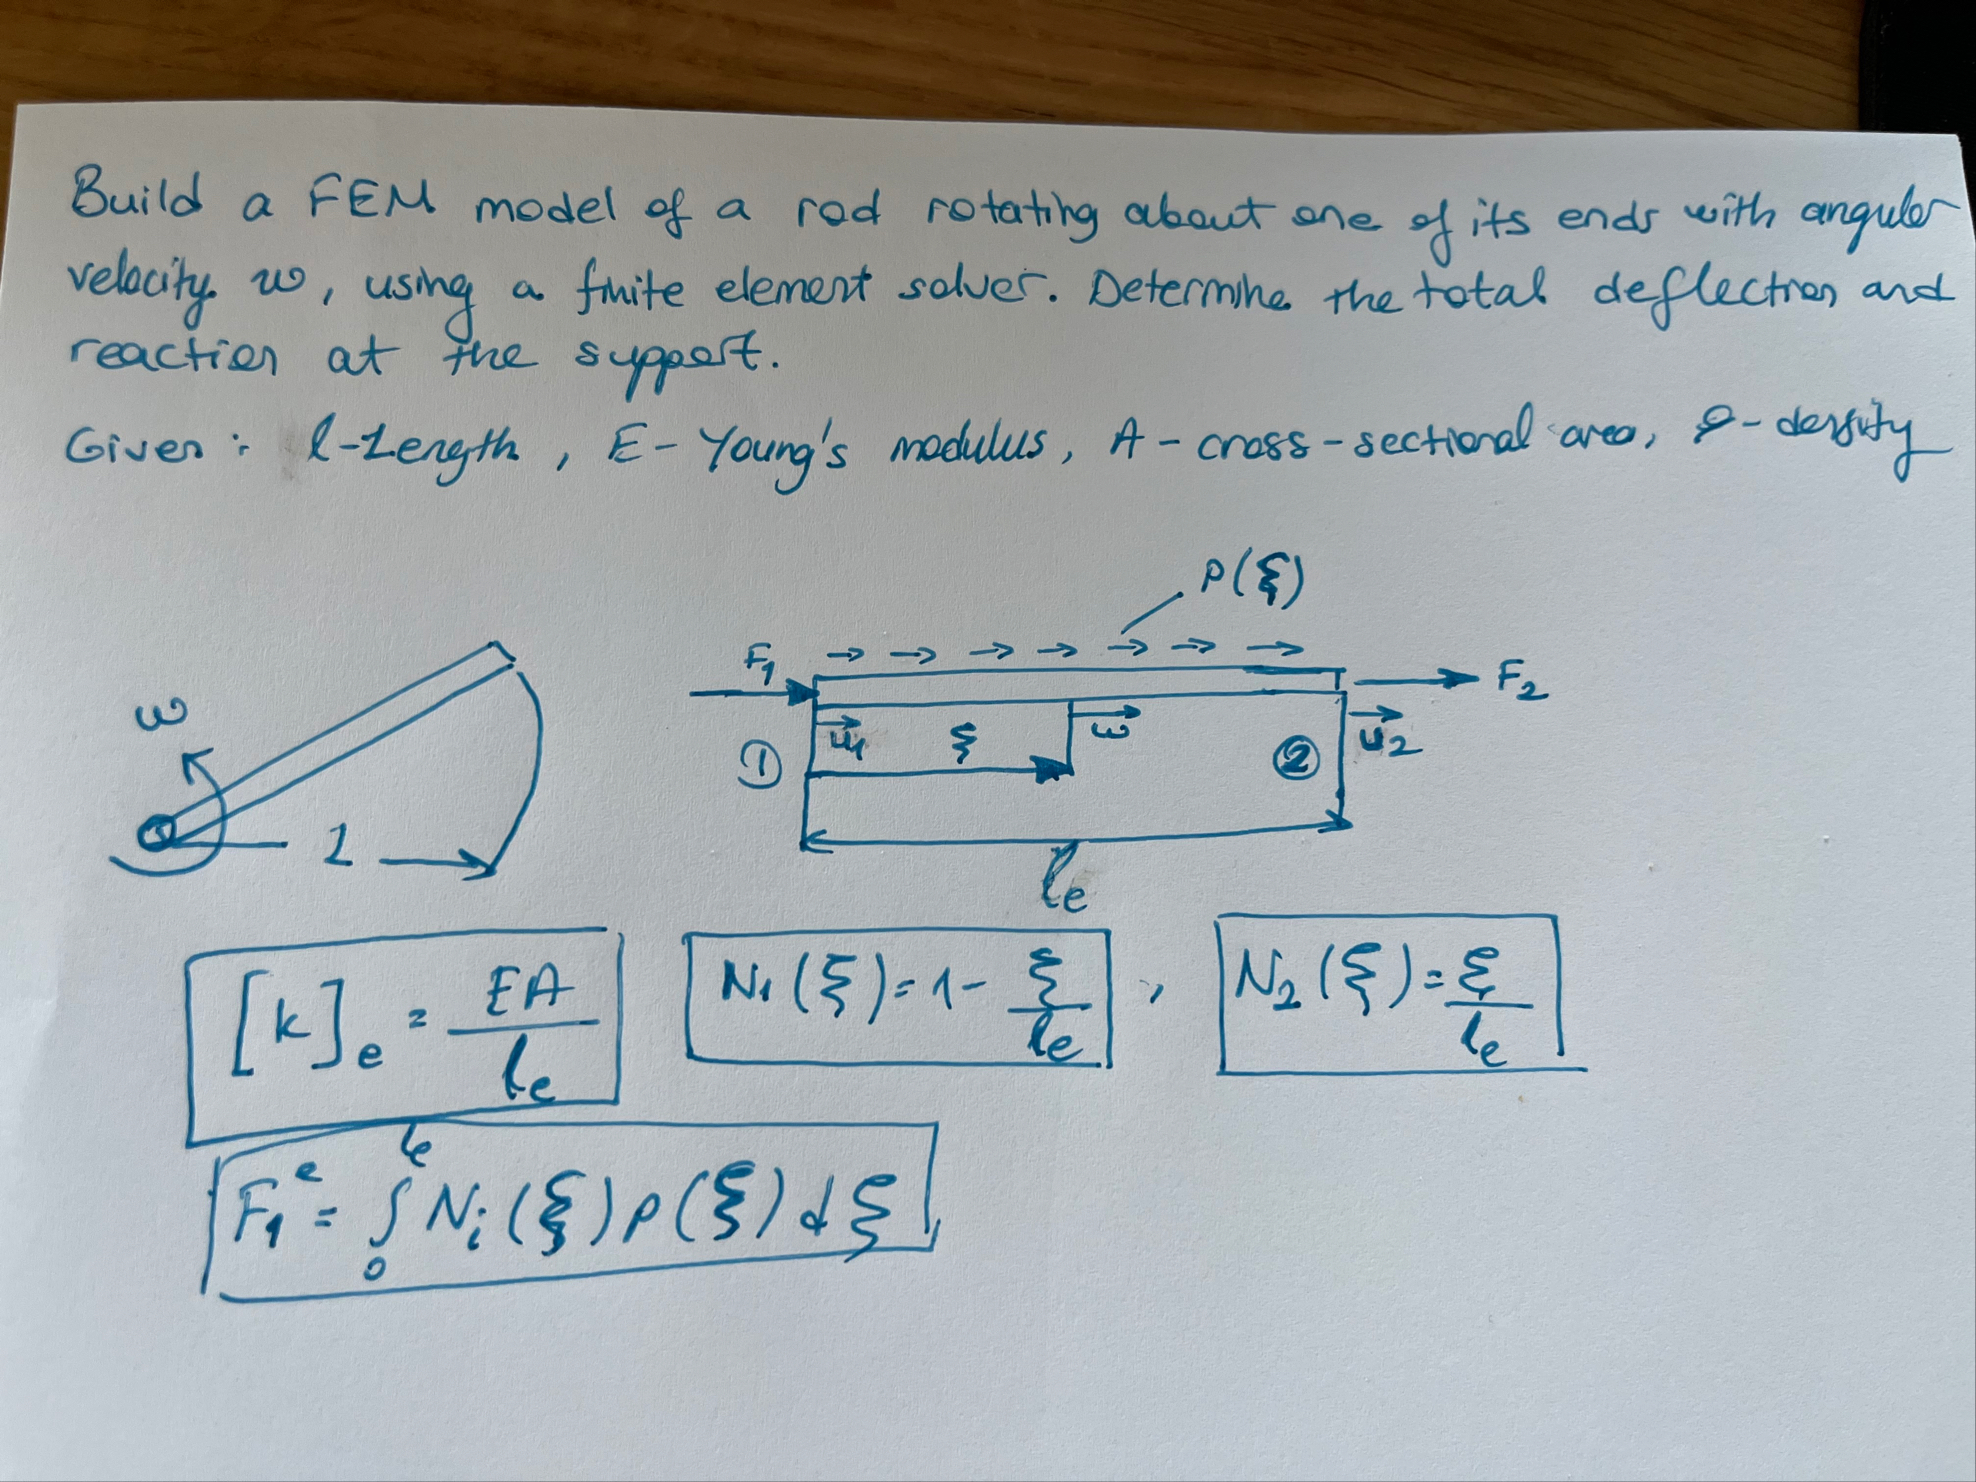 Build a FEM model of a rod rotating about one of its ends with angular
velocity ω, using a finite element solver. Determine the total deflection and
reaction at the support.
Given: l-Length, E- Young's modulus, A - cross-sectional area, ρ-density
p(ξ)
F₁ → → → → → → → F₂
ω
u₁ ξ ω u₂
① ②
l
lₑ
[k]ₑ = EA/lₑ
N₁(ξ)=1-ξ/lₑ , N₂(ξ)=ξ/lₑ
F₁ᵉ = ∫₀ˡᵉ Nᵢ(ξ)p(ξ)dξ